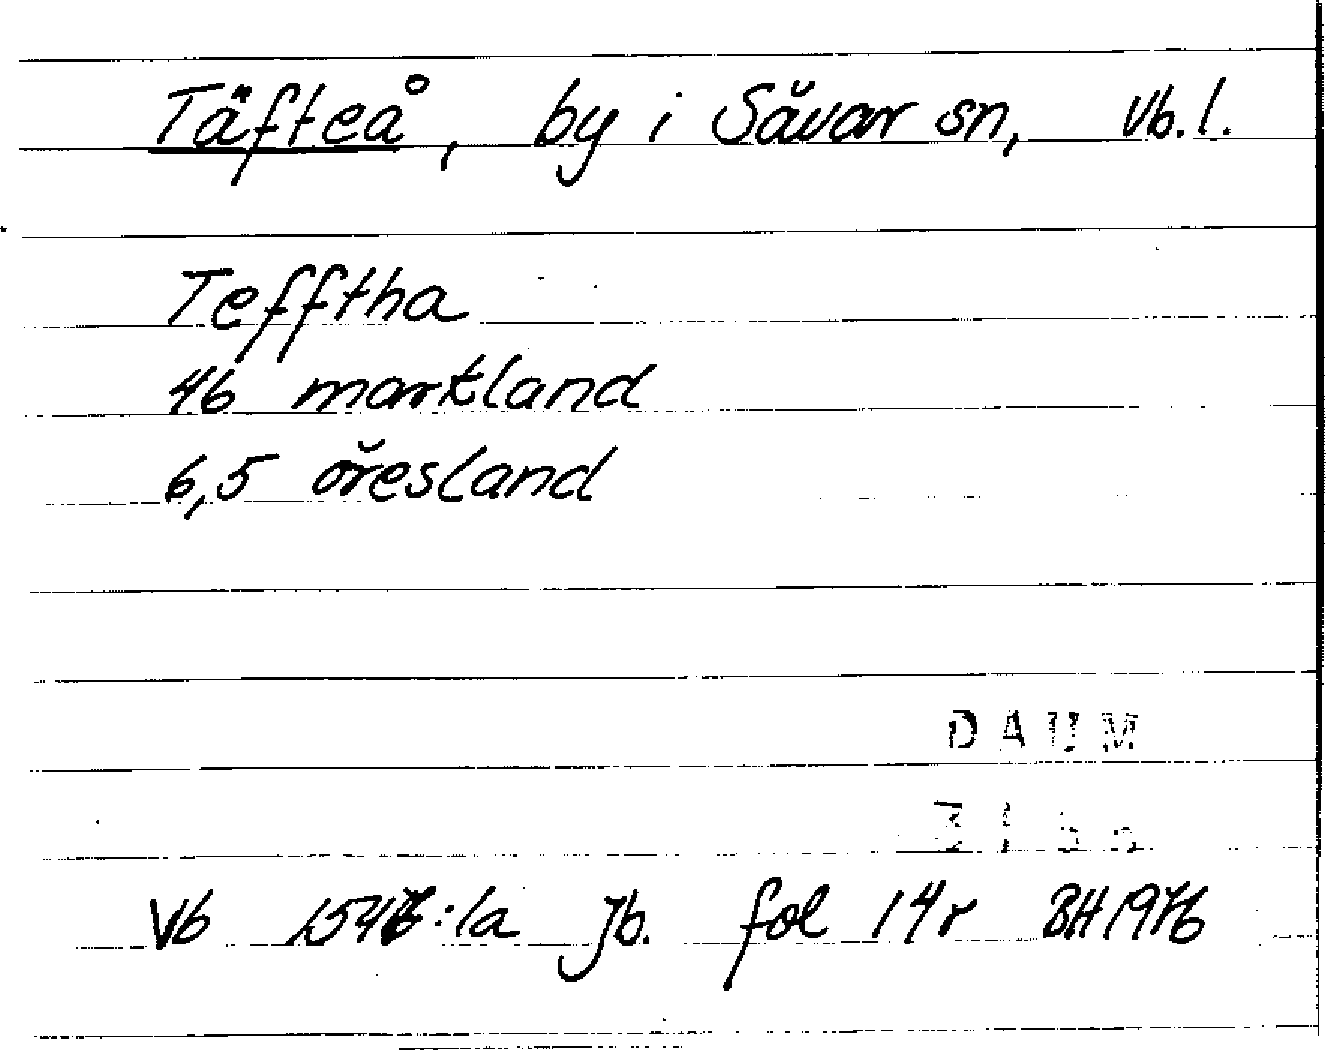 Täfteå, by i Sävar sn, Vb.l.
Tefftha
46 markland
6,5 öresland
DAUM
Vb :1a Jb. fol 14r BH 1976